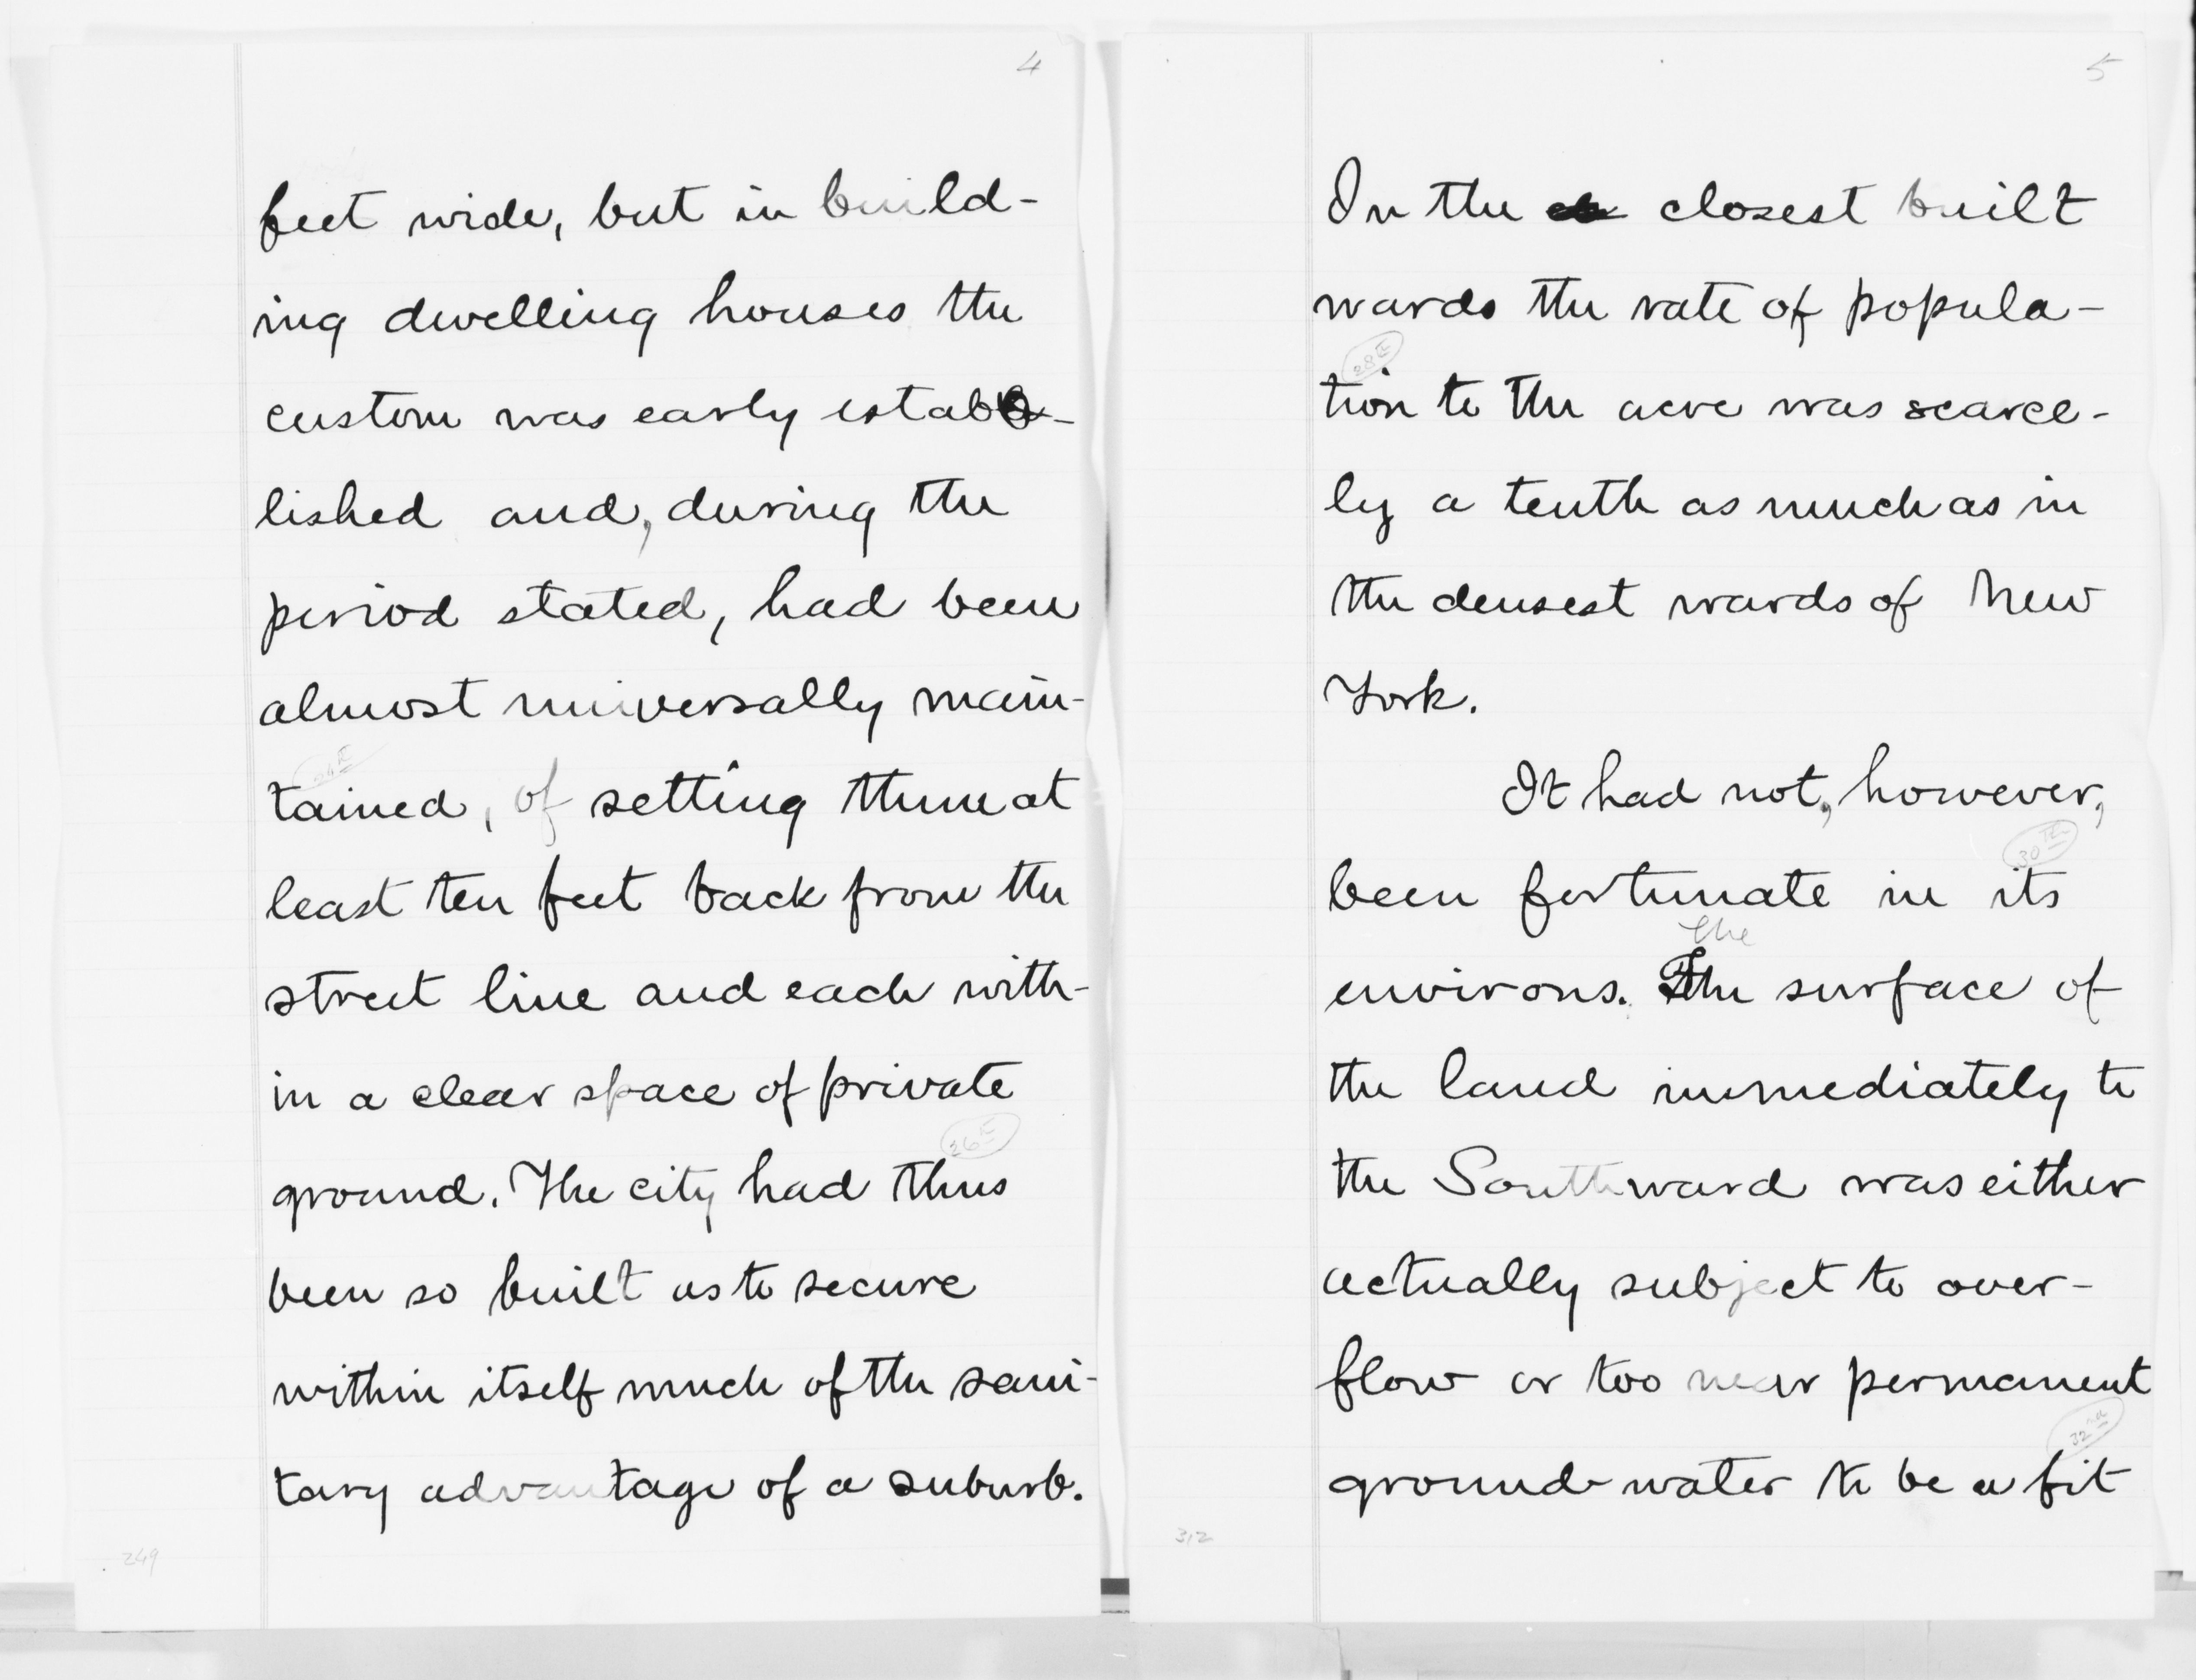 4
feet wide, but in build-
ing dwelling houses the
custom was early estab-
lished and, during the
period stated, had been
almost universally main-
24th
tained, of setting them at
least ten feet back from the
street line and each with-
in a clear space of private
26th
ground. The city had thus
been so built as to secure
within itself much of the sani-
tary advantage of a suburb.
249
5
In the closest built
wards the rate of popula-
28th
tion to the acre was scarce-
ly a tenth as much as in
the densest wards of New
York.
It had not, however,
30th
been fortunate in its
the
environs. The surface of
the land immediately to
the Southward was either
actually subject to over-
flow or too near permanent
32nd
ground-water to be a fit
312